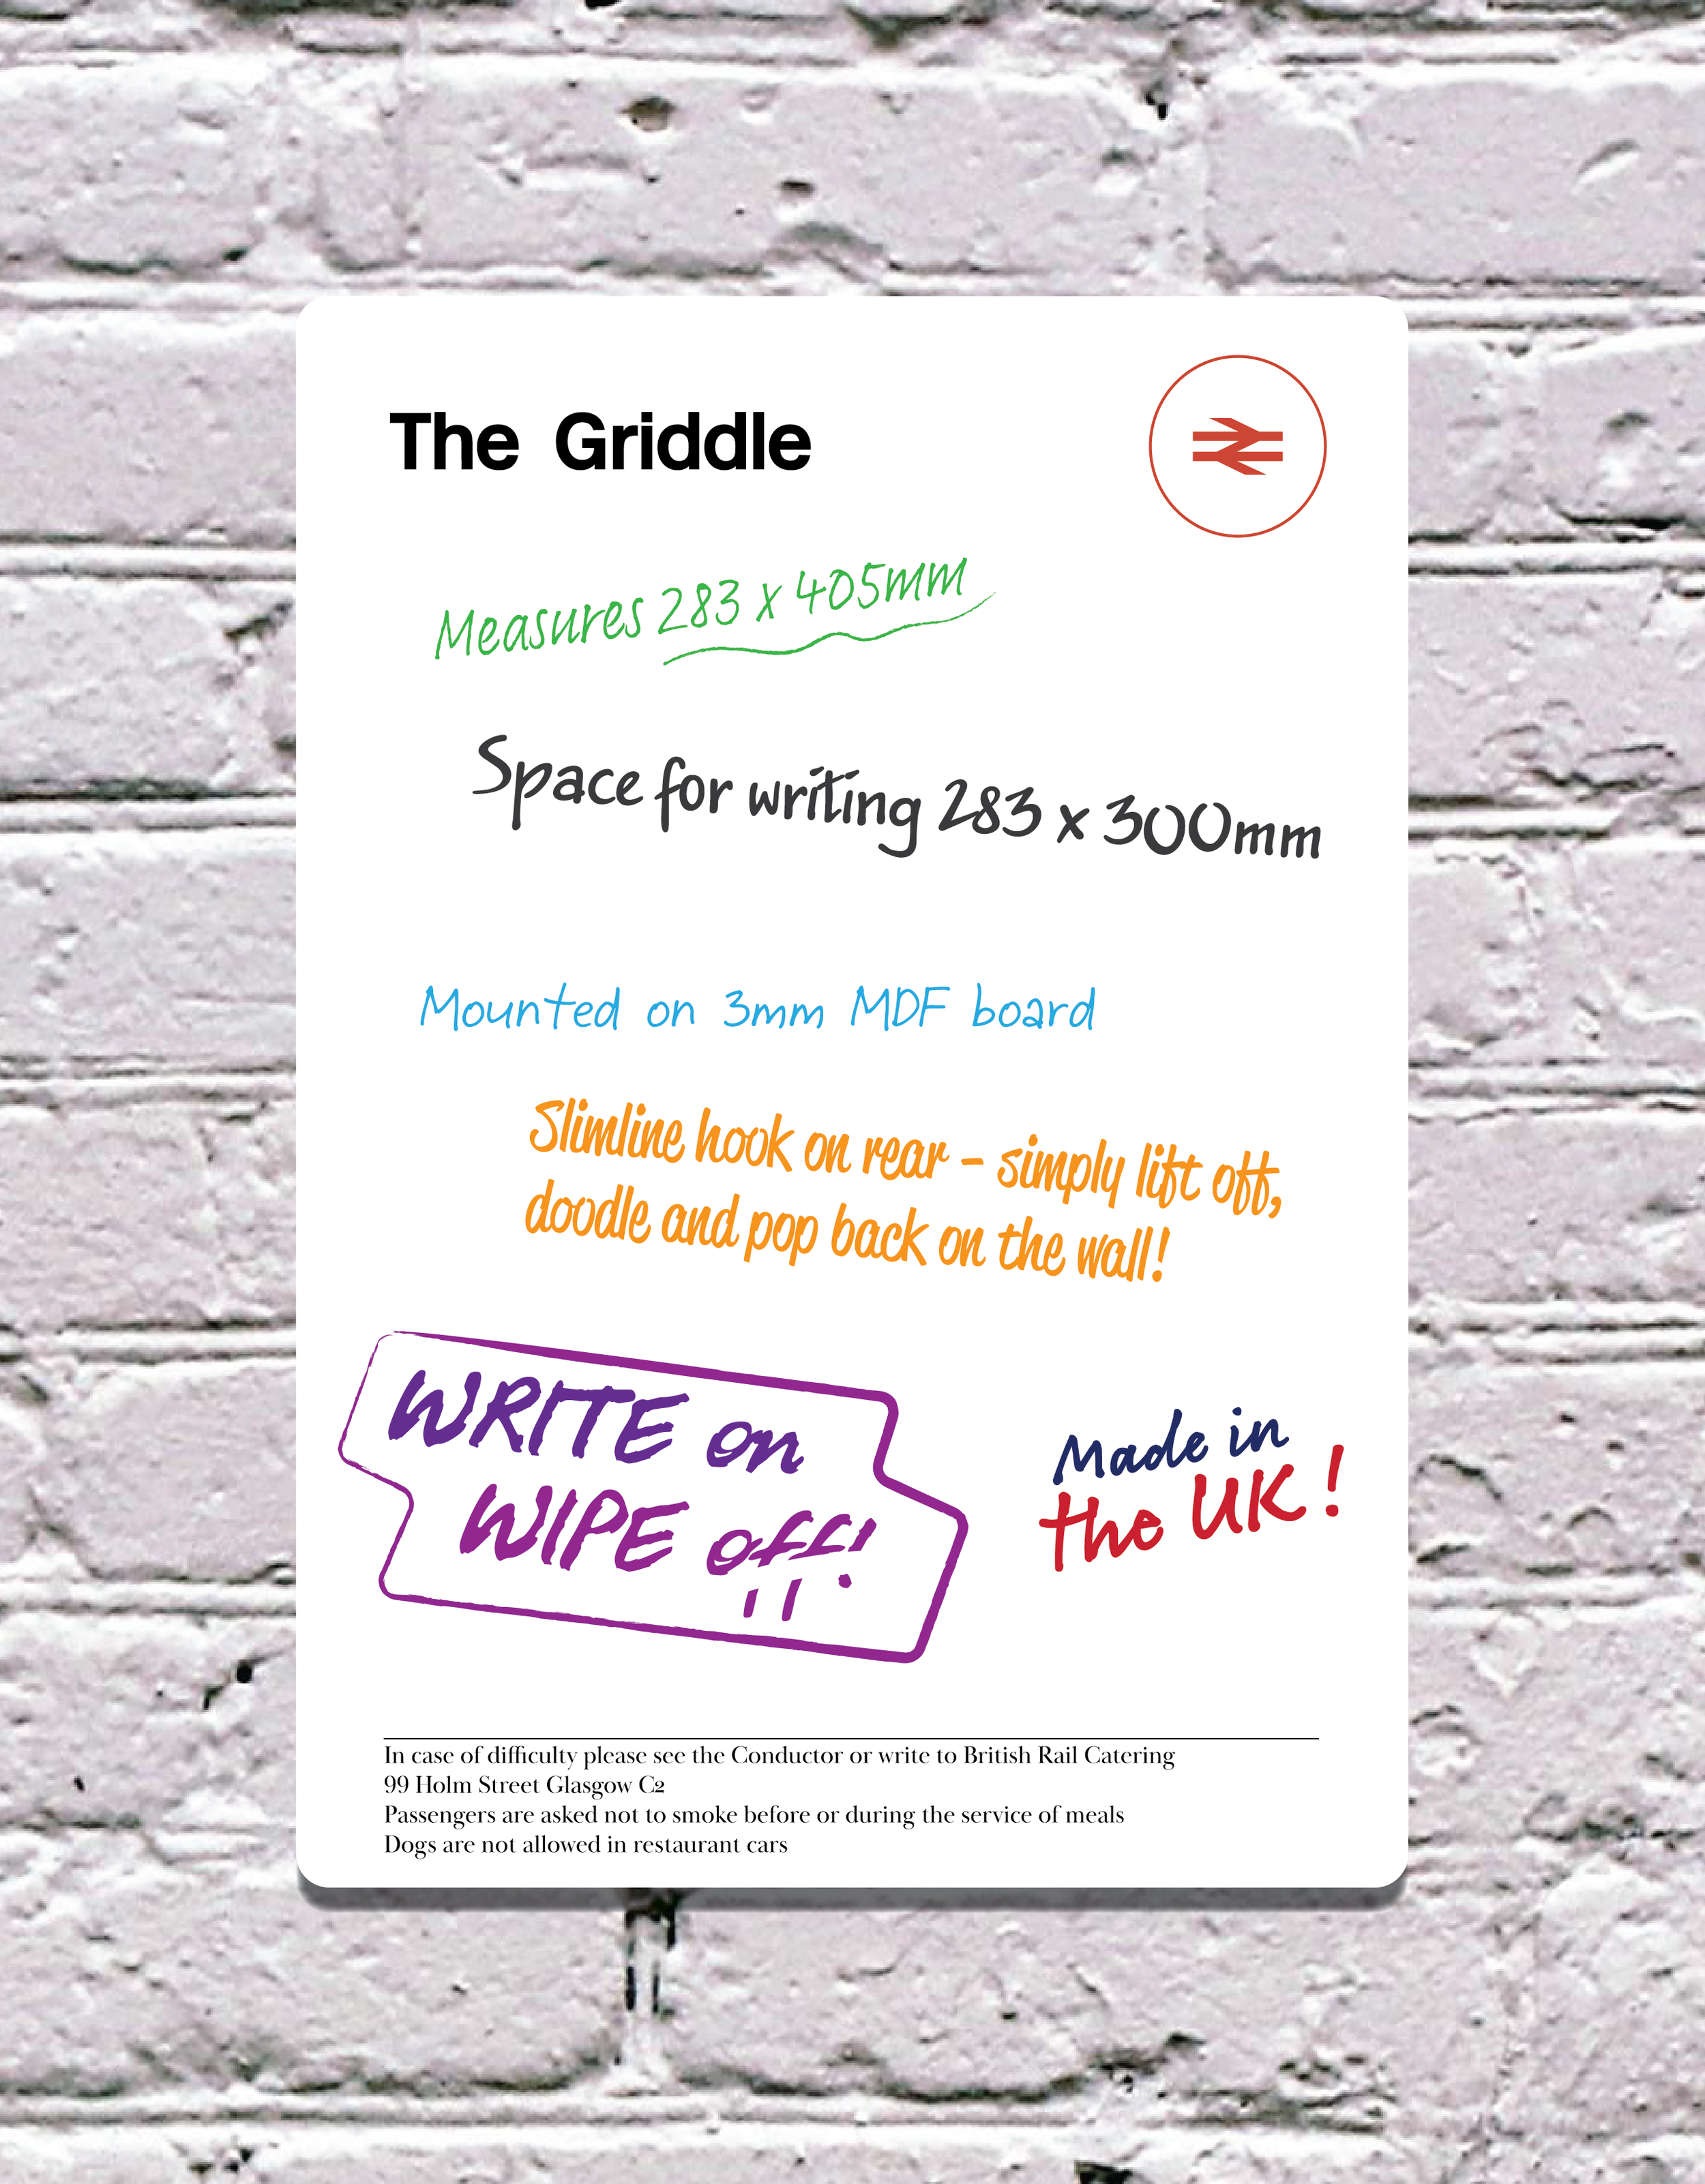 The Griddle
Measures 283 x 405mm
Space for writing 283 x 300mm
Mounted on 3mm MDF board
Slimline hook on rear - simply lift off,
doodle and pop back on the wall!
WRITE on
WIPE off!
Made in
the UK!
In case of difficulty please see the Conductor or write to British Rail Catering
99 Holm Street Glasgow C2
Passengers are asked not to smoke before or during the service of meals
Dogs are not allowed in restaurant cars